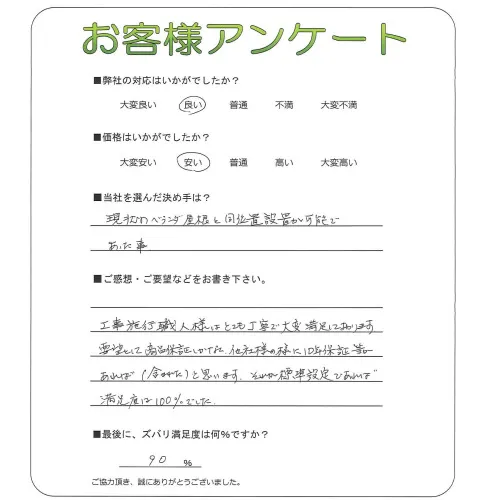 お客様アンケート
■弊社の対応はいかがでしたか？
大変良い 良い 普通 不満 大変不満
■価格はいかがでしたか？
大変安い 安い 普通 高い 大変高い
■当社を選んだ決め手は？
現状のベランダ屋根と同位置設置が可能で
あった事
■ご感想・ご要望などをお書き下さい。
工事施行職人様はとても丁寧で大変満足しております
要望として商品保証しかなく、他社様の様に10年保証等が
あれば（含めた）と思います、それが標準設定であれば
満足度は100％でした
■最後に、ズバリ満足度は何％ですか？
90 ％
ご協力頂き、誠にありがとうございました。